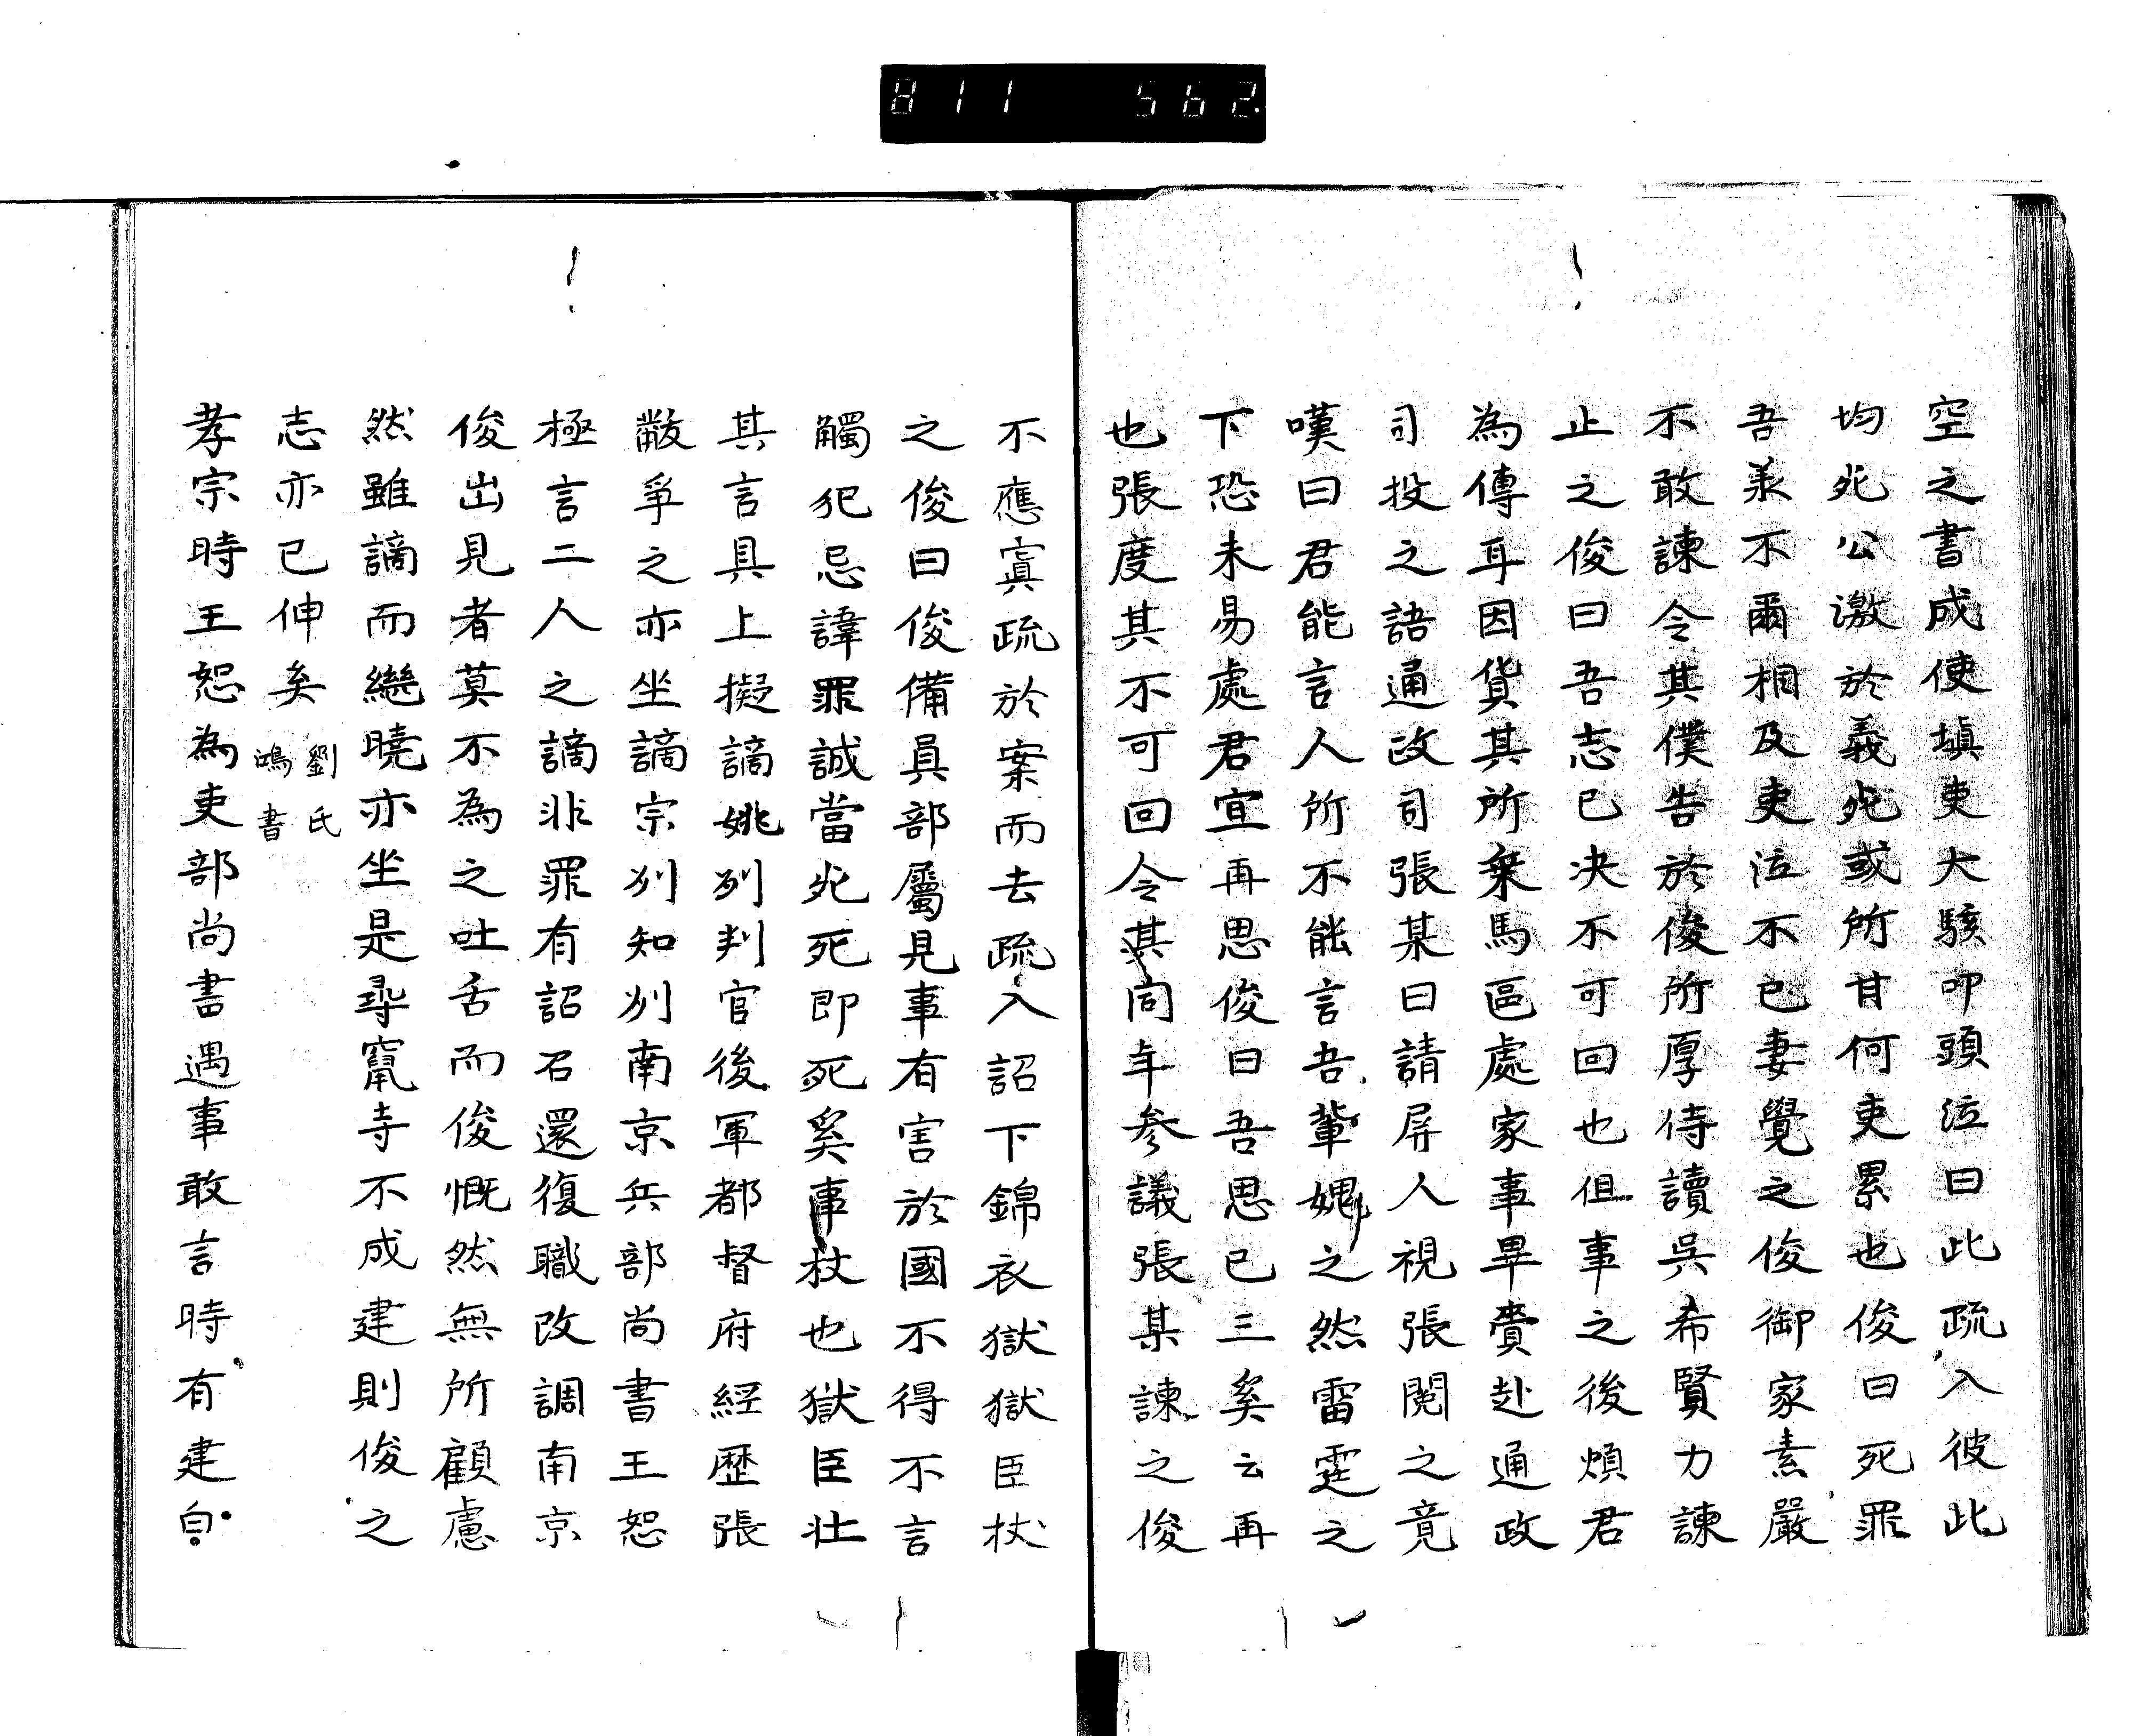 811 562
空之書成使塡吏大駭叩頭泣曰此疏入彼此
均死公激於義死或所甘何吏累也俊曰死罪
吾美不爾相及吏泣不已妻覺之俊御家素嚴
不敢諫令其僕告於俊所厚侍讀吳希賢力諫
止之俊曰吾志已決不可回也但事之後煩君
為傳耳因貨其所乗馬區處家事畢賷赴通政
司投之語通政司張某曰請屏人視張閱之竟
嘆曰君能言人所不能言吾輩媿之然雷霆之
下恐未易處君宜再思俊曰吾思已三奚云再
也張度其不可回令其同年參議張某諫之俊
不應寘疏於案而去疏入詔下錦衣獄獄臣杖
之俊曰俊備員部屬見事有害於國不得不言
觸犯忌諱罪誠當死死即死奚事杖也獄臣壮
其言具上擬謫姚列判官後軍都督府経歷張
黻爭之亦坐謫宗列知列南京兵部尚書王恕
極言二人之謫非罪有詔召還復職改調南京
俊出見者莫不為之吐舌而俊慨然無所顧慮
然雖謫而繼曉亦坐是尋竄寺不成建則俊之
志亦已伸矣 劉氏
鴻書
孝宗時王恕為吏部尚書遇事敢言時有建白